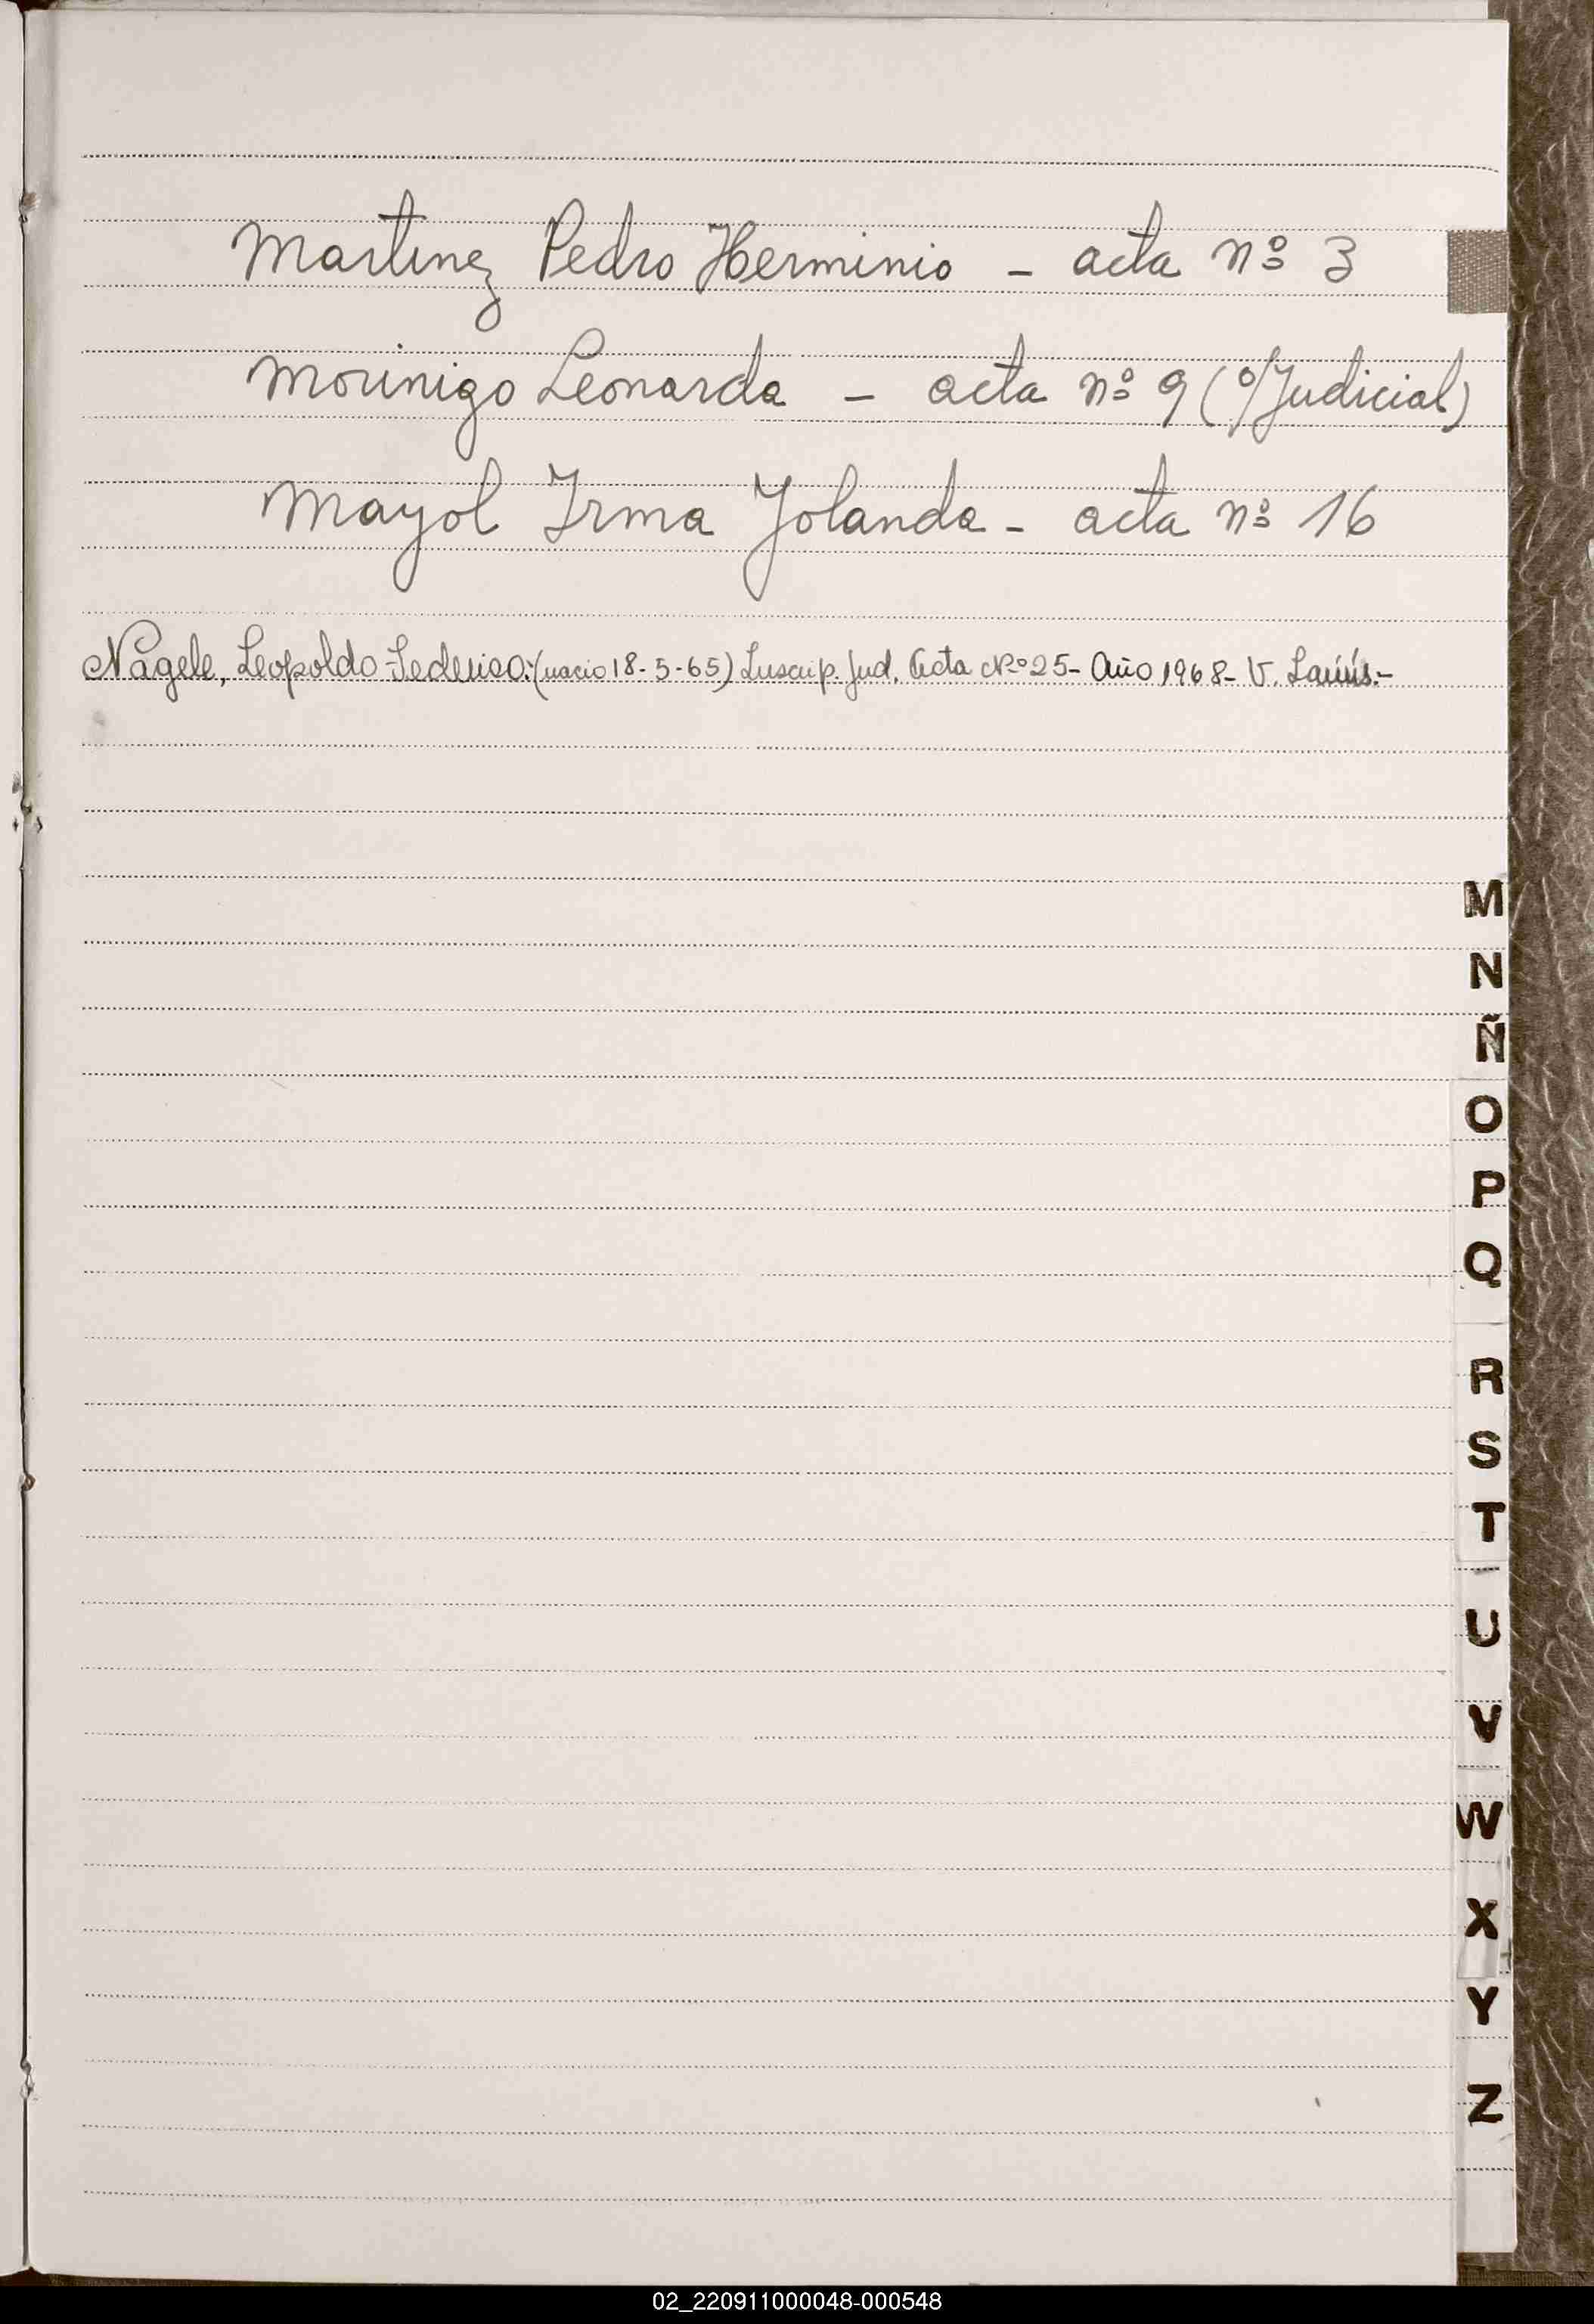 Martinez Pedro Herminio - acta nº 3
Morinigo Leonarda - acta nº 9 (º/Judicial)
Mayol Irma Yolanda - acta nº 16
Nágele, Leopoldo Federico: (nacio 18-5-65) Inscrip. Jud. Acta Nº 25- Año 1968- V.
M
N
Ñ
O
P
Q
R
S
T
U
V
W
X
Y
Z
02_220911000048-000548